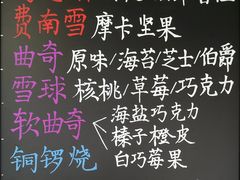 费南雪 摩卡坚果
曲奇 原味/海苔/芝士/伯爵
雪球 核桃/草莓/巧克力
软曲奇 海盐巧克力
榛子橙皮
铜锣烧 白巧莓果